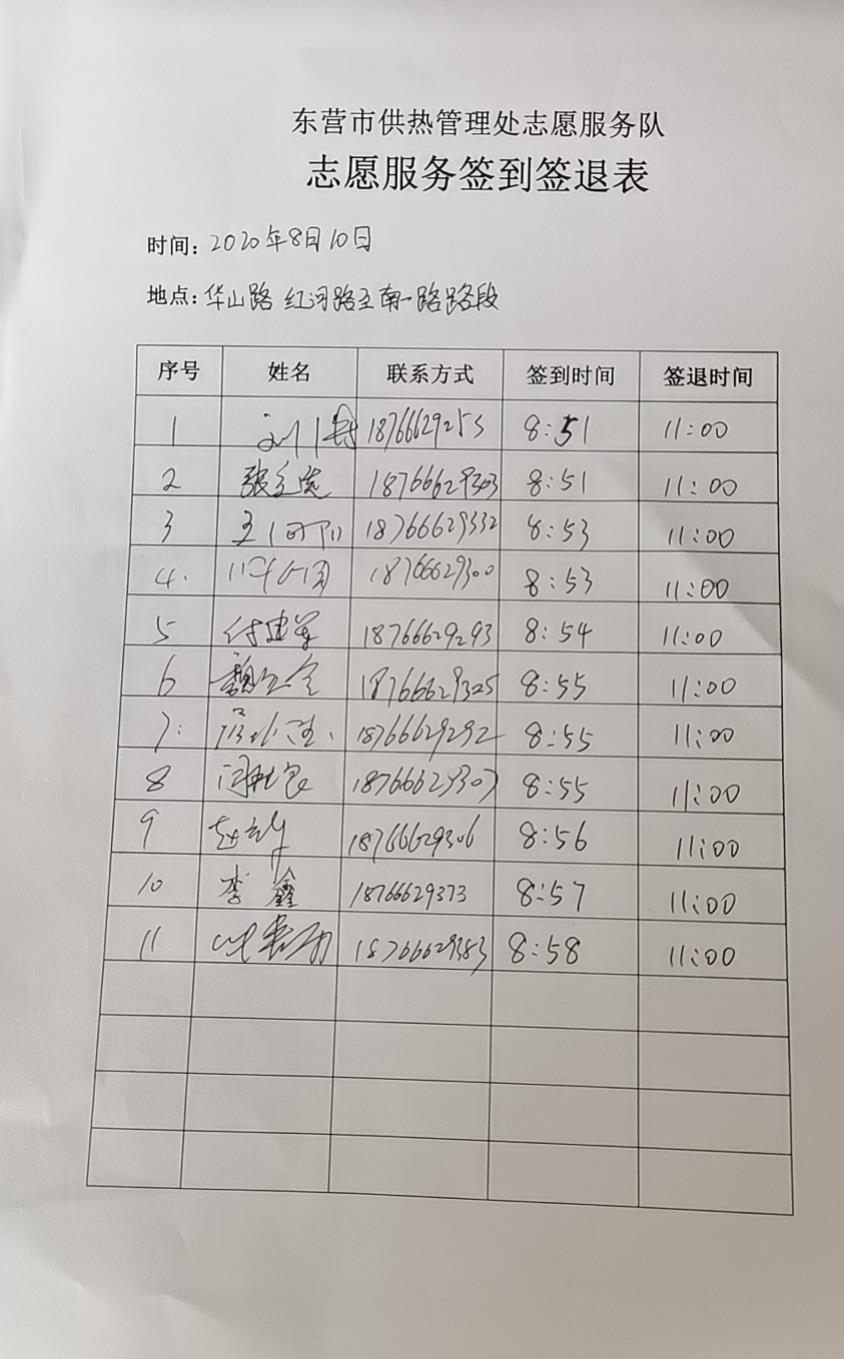 东营市供热管理处志愿服务队
志愿服务签到签退表
时间：2020年8月10日
地点：华山路 红河路至南一路路段
序号 姓名 联系方式 签到时间 签退时间
1 18766629253 8:51 11:00
2 18766629303 8:51 11:00
3 18766629332 8:53 11:00
4. 18766629300 8:53 11:00
5 付建军 18766629293 8:54 11:00
6 18766629325 8:55 11:00
7. 18766629292 8:55 11:00
8 18766629307 8:55 11:00
9 18766629306 8:56 11:00
10 李鑫 18766629373 8:57 11:00
11 18766629383 8:58 11:00